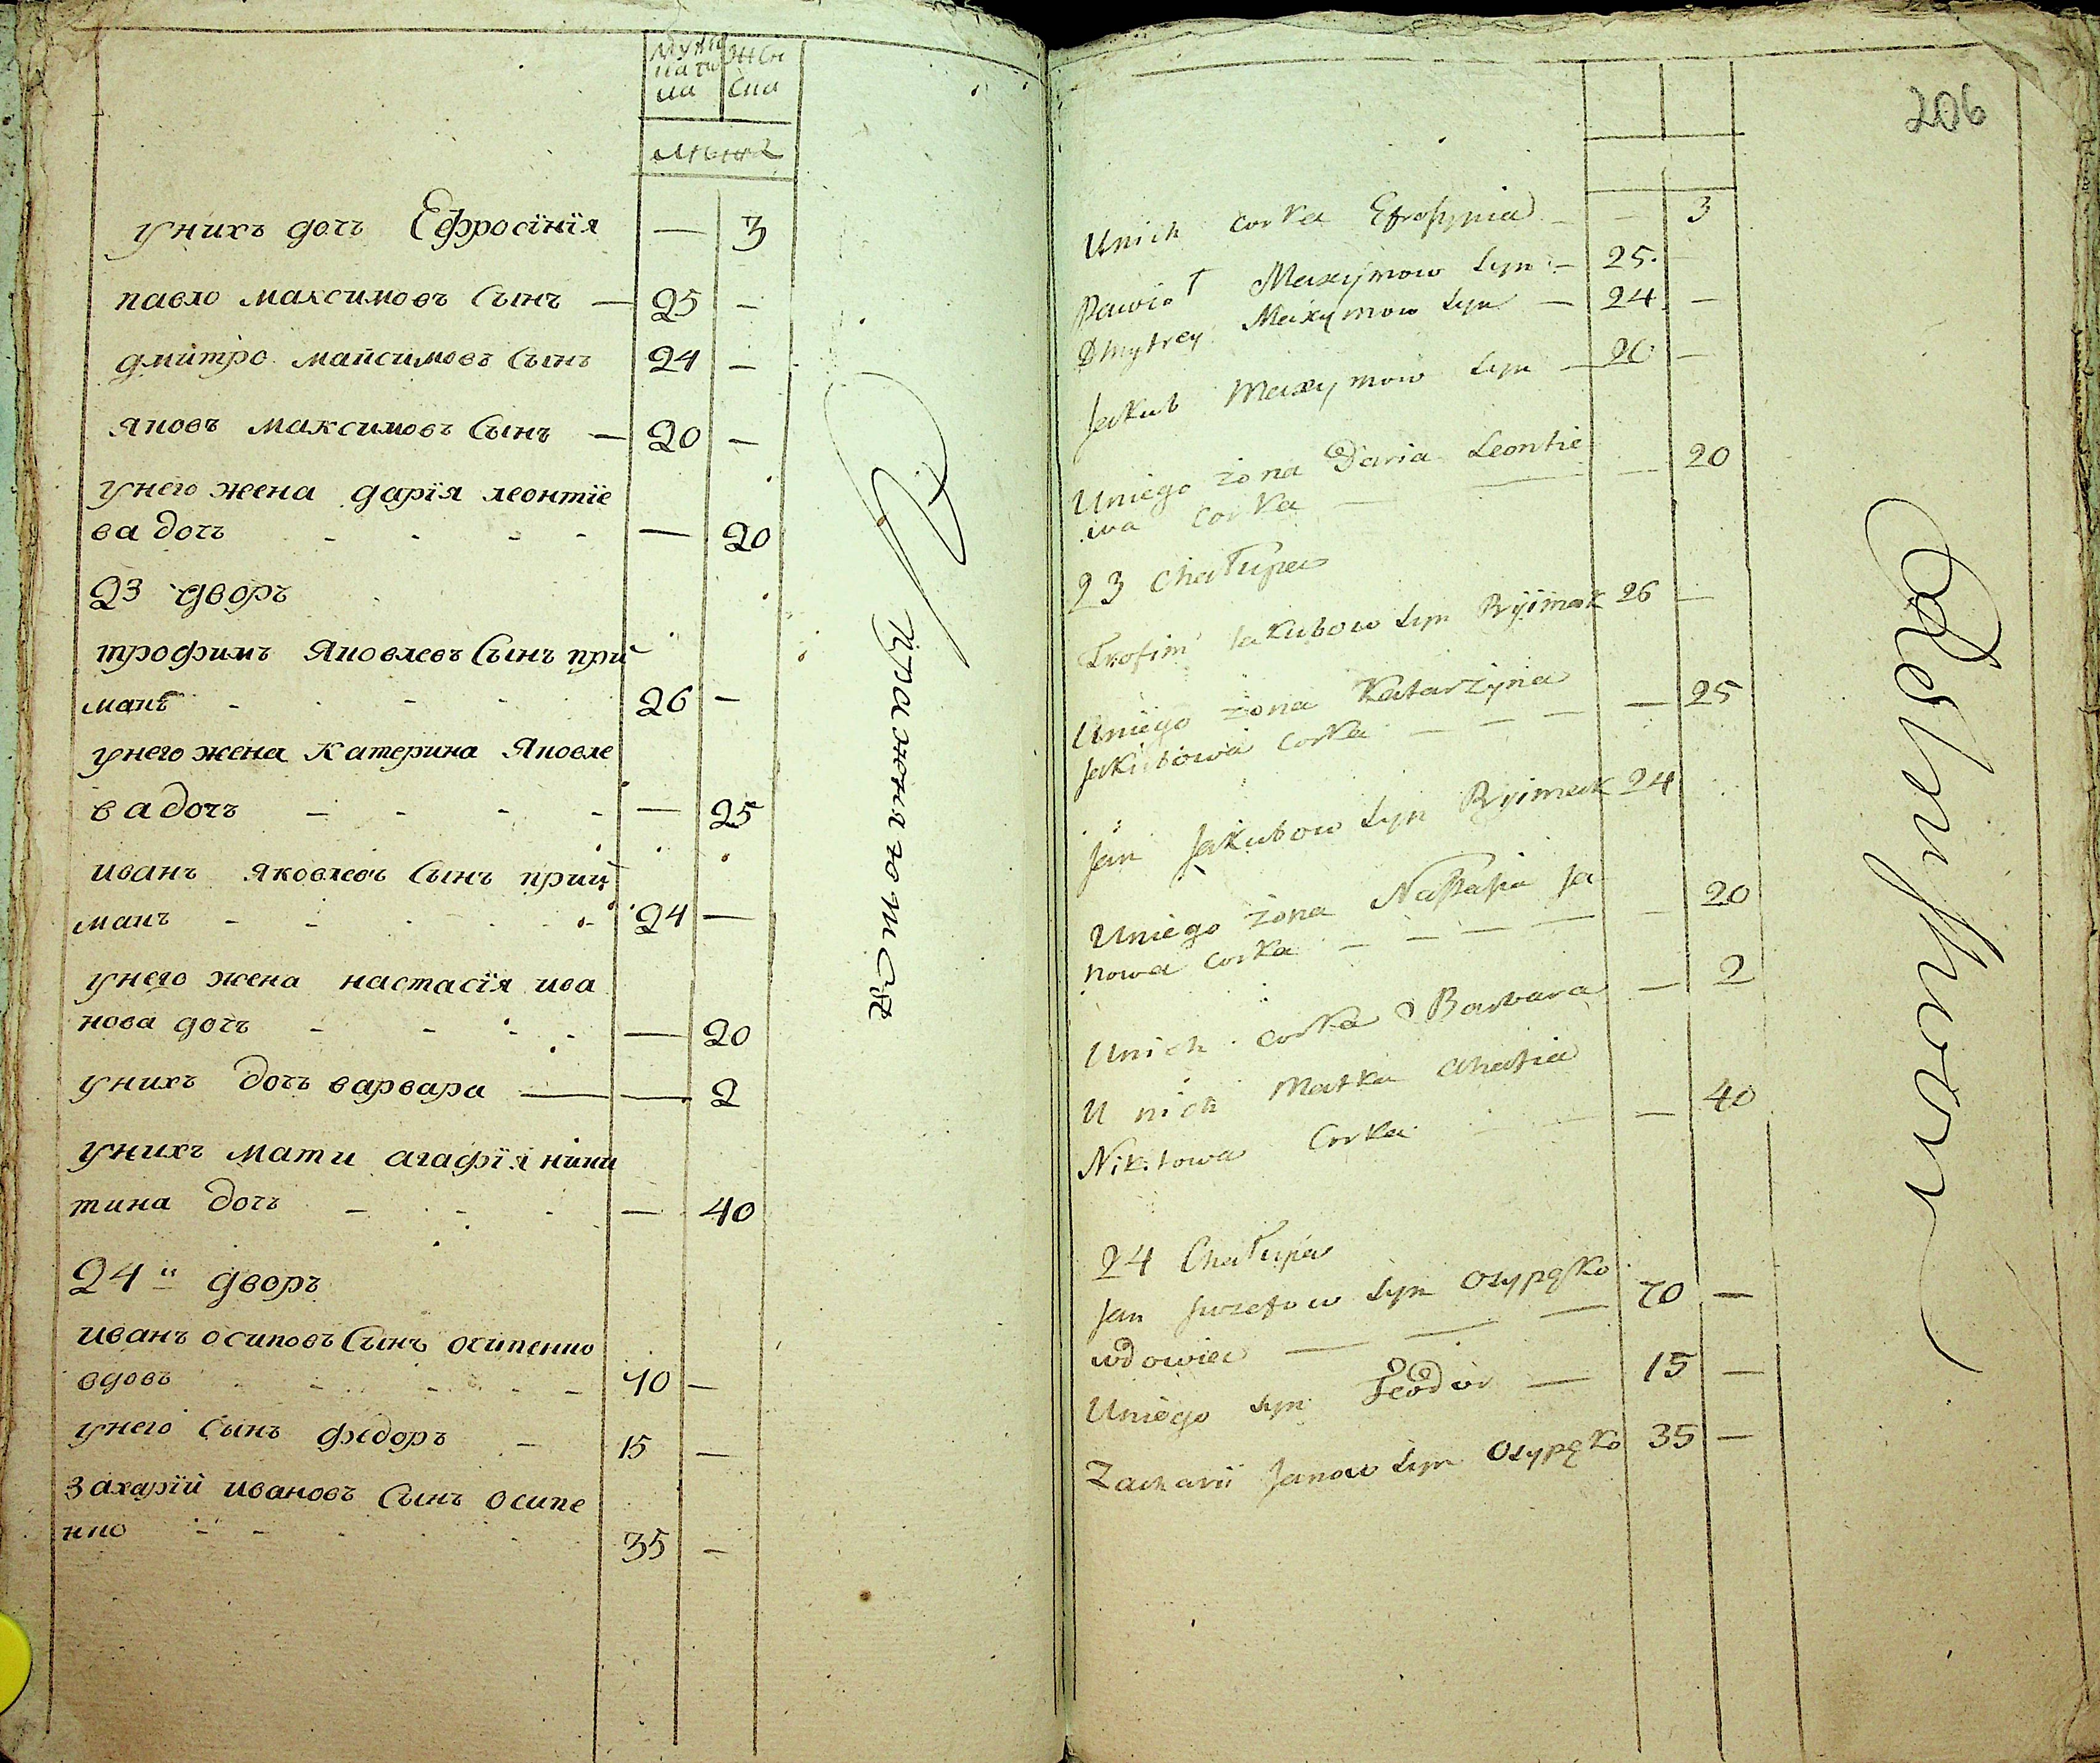 Муж Жен
ска
у нихъ дочь Ефросїнїя — 3
павло максимовъ Сынъ — 25 —
дмитро максимовъ Сынъ 24 —
яковъ максимовъ Сынъ — 20 —
у него жена дарїя леонтїе
ва дочь - - - - — 20
23 дворъ
трофимъ яковлевъ Сынъ при
макъ - - - - 26 —
у него жена катерина яковле
ва дочь — - - - — 25
иванъ яковлевъ Сынъ прий
макъ - - - - 24 —
у него жена настасїя ива
нова дочь - - - - — 20
у нихъ дочь варвара — — 2
у нихъ мати агафїя ники
тина дочь — - - — 40
24й дворъ
иванъ осиповъ Сынъ осипенко
вдовъ - - - - - 70 —
у него Сынъ федоръ — 15 —
захарїй ивановъ Сынъ осипе
нко - - - - 35 —
206
Unich corka Efrosynia — — 3
Pawło Maxymow Syn — 25 —
Dmytrey Maxymow Syn — 24 —
Jakub Maxymow Syn — 20 —
Uniego żona Daria Leontie
wa corka — — — 20
23 Chałupa
Trofim Jakubow Syn Pryimak 26 —
Uniego żona Katarzyna
Jakubowa corka — — — — 25
Jan Jakubow Syn Pryimak 24
Uniego żona Nastasia Ja
nowa corka — — — — — 20
Unich corka Barbara — 2
U nich Matka Ahafia
Nikitowa Corka — 40
24 Chałupa
Jan Juzefow Syn Osypęko
wdowiec — — — 70 —
Uniego Syn Feodor — 15 —
Zacharii Janow Syn Osypęko 35 —